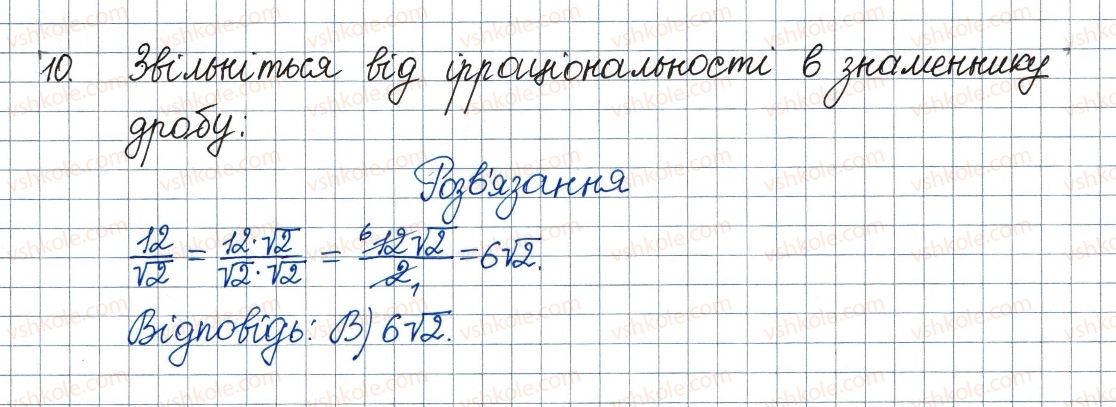 10. Звільніться від ірраціональності в знаменнику
дробу:
Розв'язання
12/√2 = 12·√2/√2·√2 = 6 12√2/2 1 = 6√2.
Відповідь: В) 6√2.